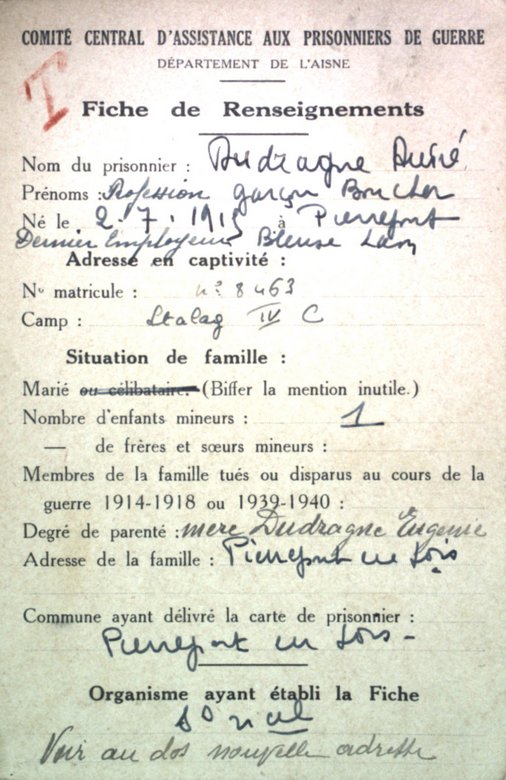 COMITÉ CENTRAL D'ASSISTANCE AUX PRISONNIERS DE GUERRE
DÉPARTEMENT DE L'AISNE
T
Fiche de Renseignements
Nom du prisonnier : Dudragne
Prénoms : Profession garçon Boucher
Né le 2.7.191 à Pierrepont
Dernier Employeur Laon
Adresse en captivité :
No matricule : no 8463
Camp : Stalag IV C
Situation de famille :
Marié ou célibataire. (Biffer la mention inutile.)
Nombre d'enfants mineurs : 1
— de frères et sœurs mineurs :
Membres de la famille tués ou disparus au cours de la
guerre 1914-1918 ou 1939-1940 :
Degré de parenté : mere Dudragne Eugenie
Adresse de la famille : Pierrepont en Lois
Commune ayant délivré la carte de prisonnier :
Pierrepont en Lois -
Organisme ayant établi la Fiche
Voir au dos nouvelle adresse